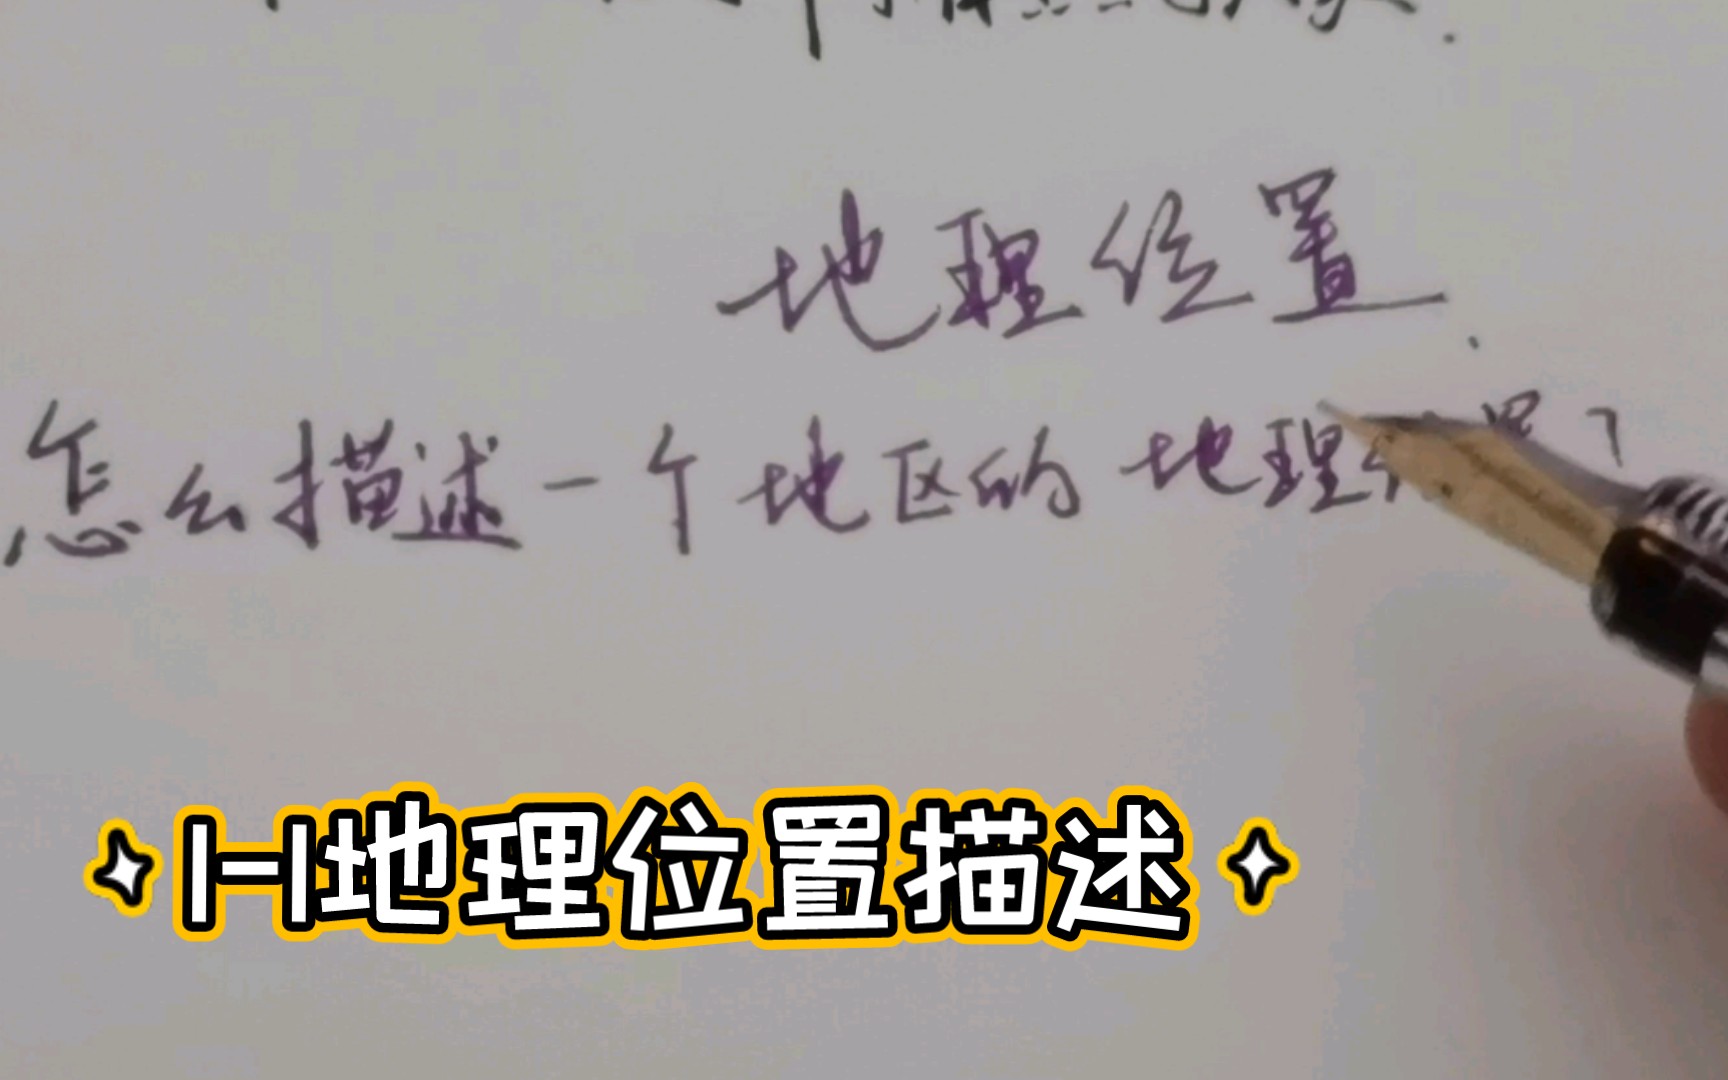 地理位置.
怎么描述一个地区的地理位置?
1-1地理位置描述